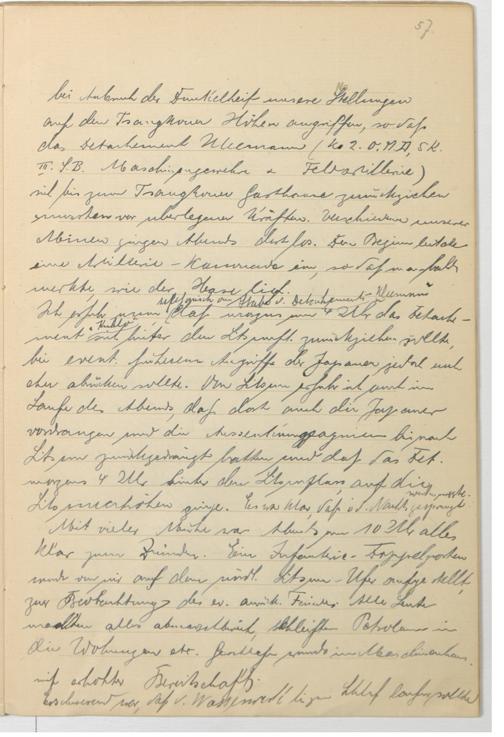 57.
bei Anbruch der Dunkelheit unsere Stellungen
auf den Tsangkouer Höhen angriffen, so daß
das Detachement Ullmann (Ko 2. O.M.D, 5.K.
III. S.B. Maschinengewehre & Feldartillerie)
sich bis zum Tsangkouer Gasthause zurückziehen
mussten vor überlegenen Kräften. Verschiedene unserer
Minen gingen Abends dort los. Den Beginn leitete
eine Artillerie-Kanonade ein, so daß man bald
merkte wie der Hase lief.
telefonisch vom Stabe d. Detachements Ullmann
Ich erfuhr nun daß morgens um 4 Uhr das Detache-
ment sich hinter den Litsunfl. zurückziehen sollte,
bei event. früherem Angriffe der Japaner jedoch auch
eher abrücken sollte. Von Litsun erfuhr ich auch im
Laufe des Abends, daß dort auch die Japaner
vordrangen und die bis nach
Litsun zurückgedrängt hatten und daß das Det.
morgens 4 Uhr hinter den Litsunfluss, auf die
Litsunerhöhen ginge. Es war klar, daß i. d. Nacht gesprengt
werden musste.
Mit vieler Mühe war Abends um 10 Uhr alles
klar zum Zünden. Ein Infanterie-Doppelposten
wurde von mir auf dem nördl. Litsun-Ufer aufgestellt,
zur Beobachtung des ev. anrück. Feindes. Alle Leute
machten alles abmarschbereit, schleiften Petroleum in
die Wohnungen etc. Geschlafen wurde im Maschinenhaus.
in erhöhter Bereitschaft.
erschwerend war, daß d. Wasserwerk laufen sollte